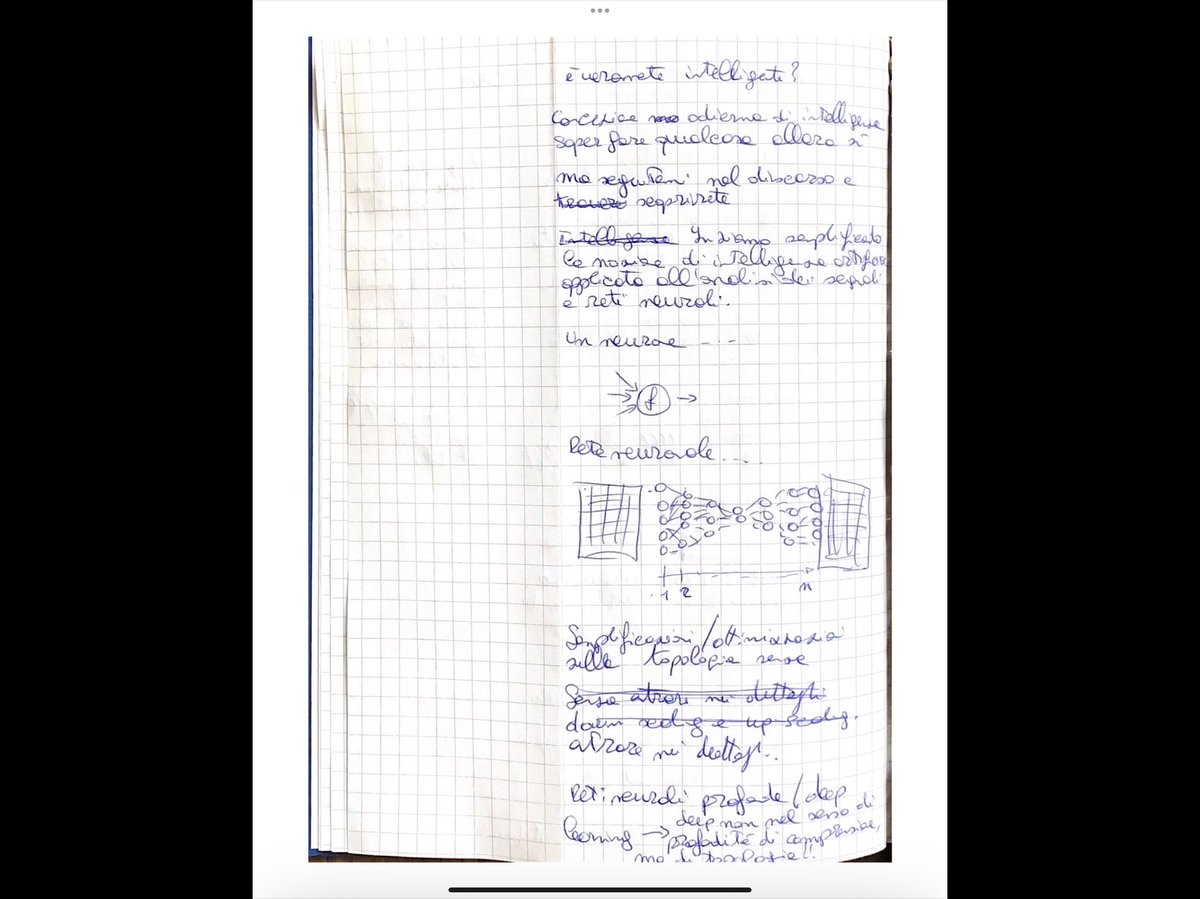 è veramente intelligente?
Concezione odierna di intelligenza
saper fare qualcosa allora sì
ma seguitemi nel discorso e
scoprirete
Intelligenza In siamo semplificato
la nozione di intelligenza artific
applicata all'analisi dei segnali
e reti neurali.
Un neurone ----
f
Rete neuronale ....
1 2 n
Semplificazioni/ottimizzazioni
sulla topologia senza
Senza entrare nei dettagli
down scaling e up scaling.
entrare nei dettagl..
Reti neurali profonde/deep
deep non nel senso di
learning → profondità di comprensione,
ma di topologia!!